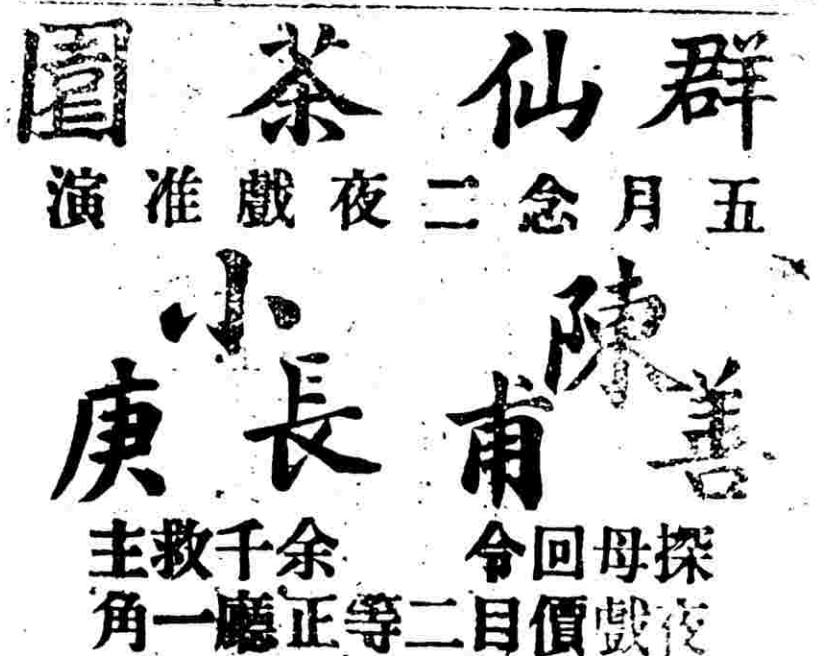 群仙茶園
五月念二夜戲准演
陳善甫
小長庚
探母回令
余千救主
夜戲價目二等正廳一角